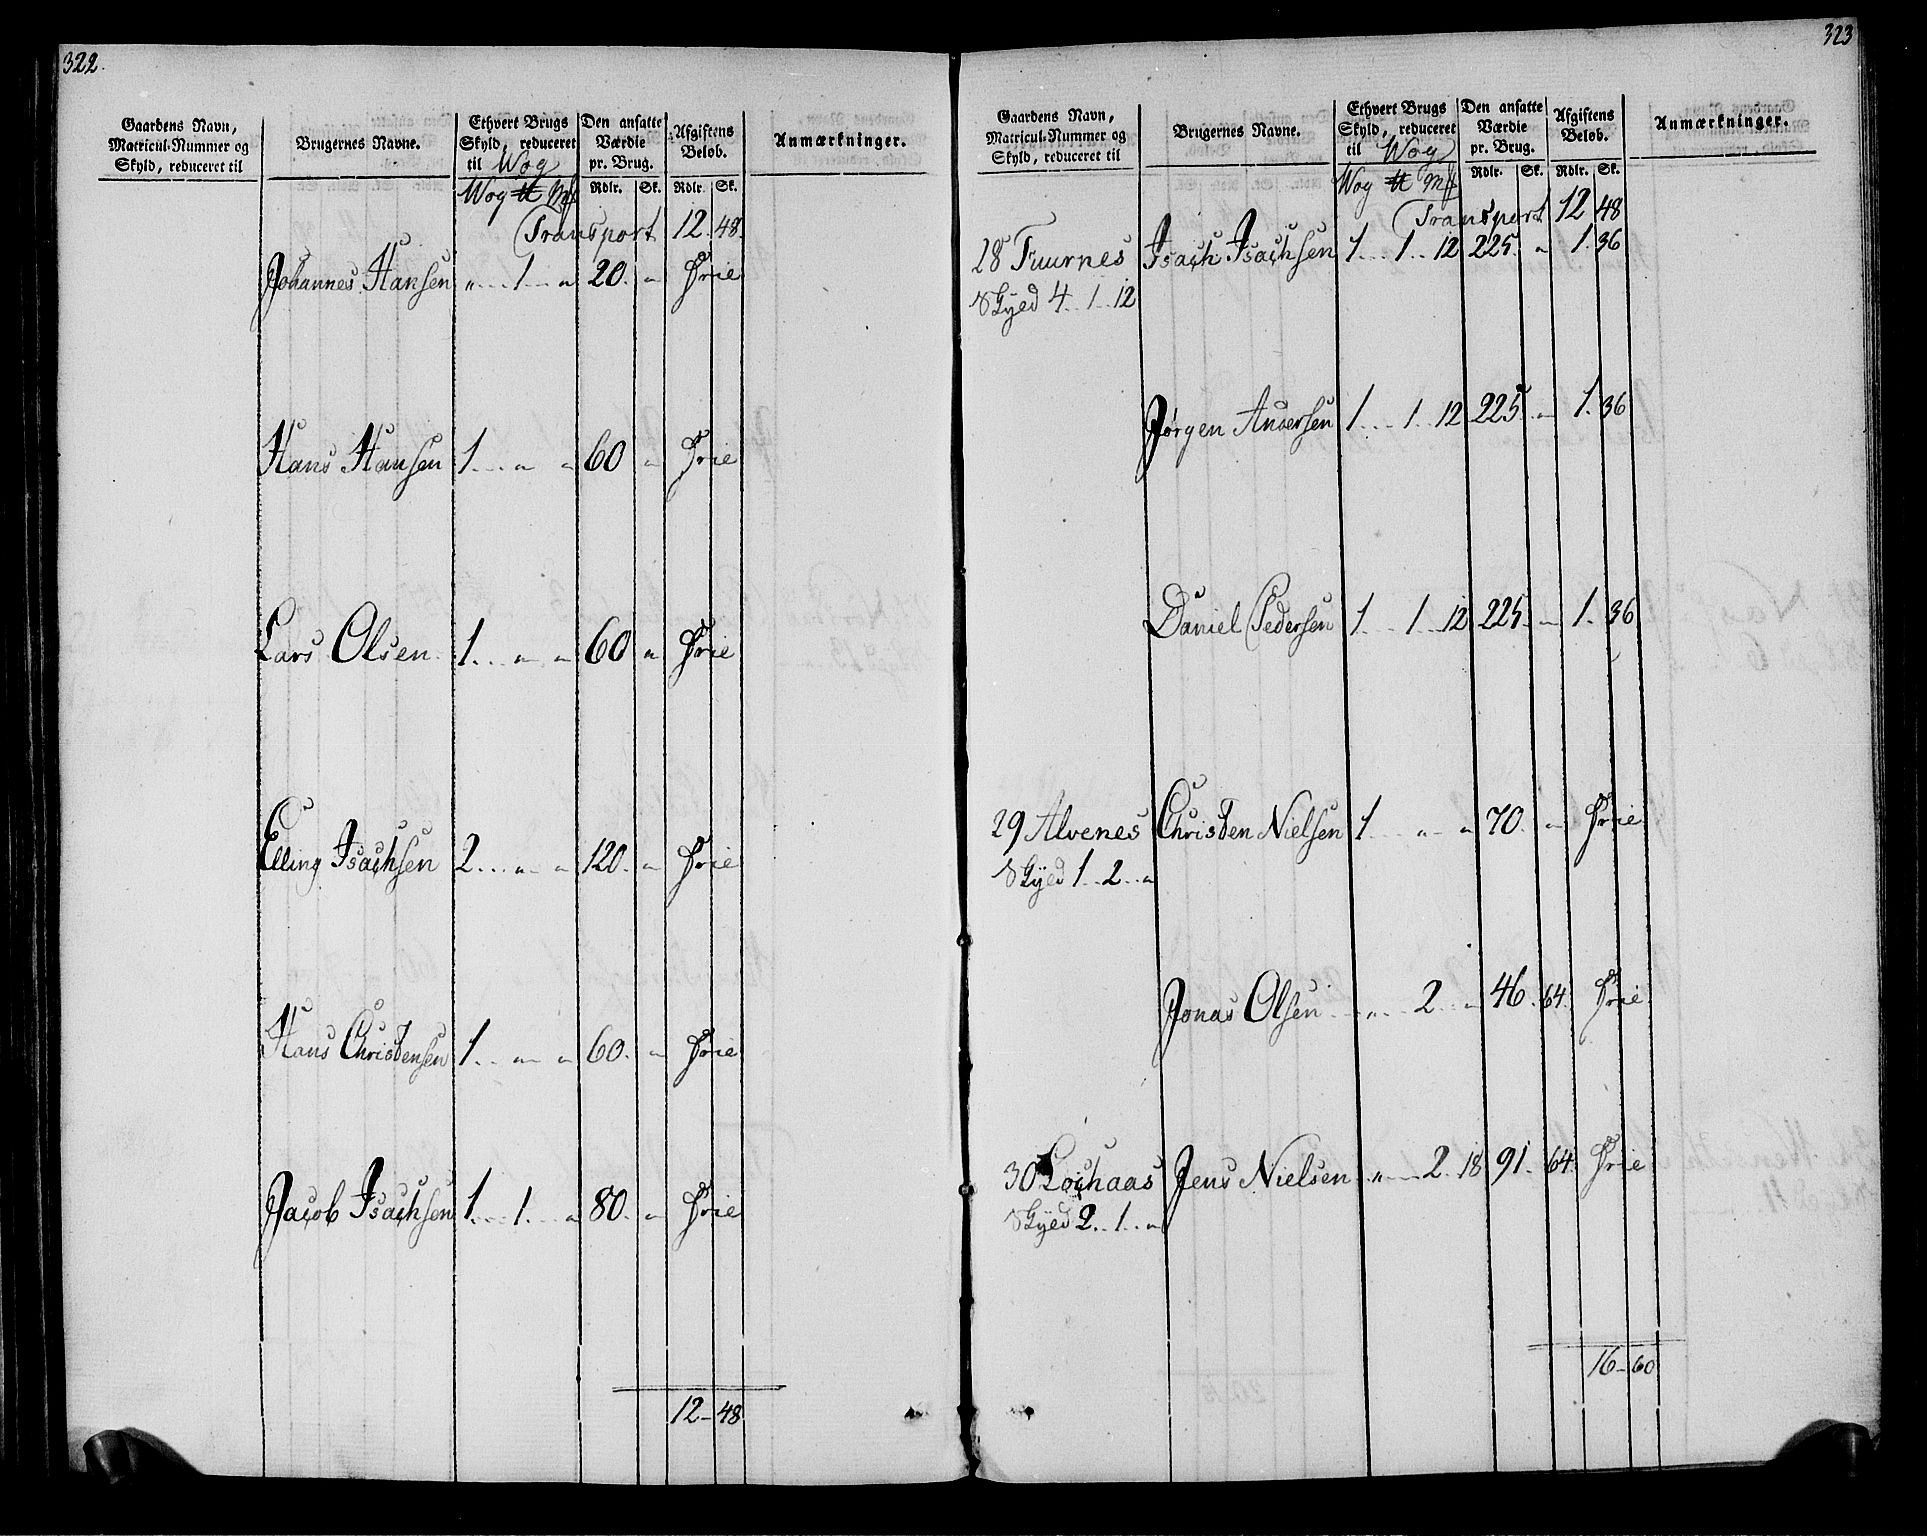 322.
Gaardens Navn,
Matricul-Nummer og
Skyld, reduceret til
Brugernes Navne.
Ethvert Brugs
Skyld, reduceret
til Wog
Den ansatte
Værdie
pr. Brug.
Afgiftens
Beløb.
Anmærkninger.
Wog ℔ Mk Rdlr. Sk. Rdlr. Sk.
Transport 12. 48.
Johannes Hansen „ 1 „ 20. „ Frie
Hans Hansen 1 „ „ 60 „ Frie
Lars Olsen 1 „ „ 60 „ Frie
Elling Isachsen 2 „ „ 120 „ Frie
Hans Christensen 1 „ „ 60. „ Frie
Jacob Isachsen 1 1 „ 80. „ Frie
12 - 48
323
Gaardens Navn,
Matricul-Nummer og
Skyld, reduceret til
Brugernes Navne.
Ethvert Brugs
Skyld, reduceret
til Wog
Den ansatte
Værdie
pr. Brug.
Afgiftens
Beløb.
Anmærkninger.
Wog ℔ Mk Rdlr. Sk. Rdlr. Sk.
Transport 12 48
28 Fuurnes Isach Isachsen 1 1 12 225. „ 1. 36
Skyld 4 1 12
Jørgen Andersen 1 1 12 225 „ 1. 36
Daniel Pedersen 1 1 12 225. „ 1. 36
29 Alvenes Christen Nielsen 1 „ „ 70. „ Frie
Skyld 1 2 „
Jonas Olsen „ 2 „ 46. 64. Frie
30 Lochaas Jens Nielsen „ 2 18 91. 64. Frie
Skyld 2 1 „
16 - 60